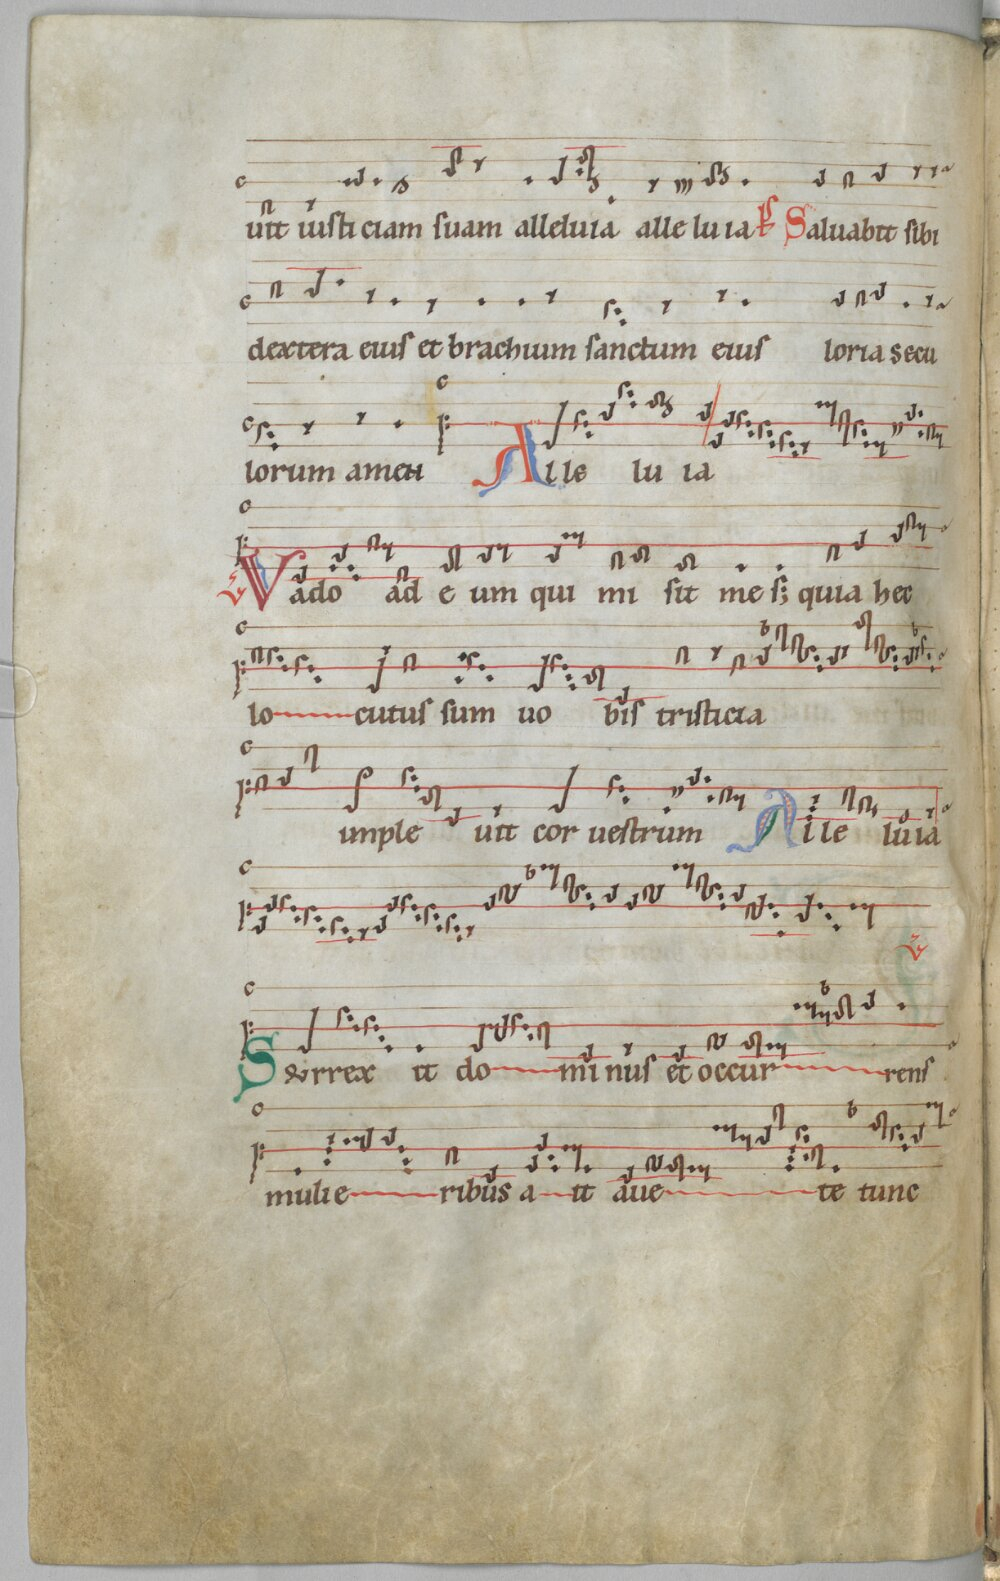 uit iusticiam suam alleluia alleluia Ps Saluabit sibi
dextera eius et brachium sanctum eius loria secu
lorum amen Alle lu ia
V Vado ad e um qui mi sit me s; quia hec
lo cutus sum uo bis tristicia
imple uit cor uestrum Alle luia
V
Surrex it do minus et occur rens
mulie ribus a it aue te tunc